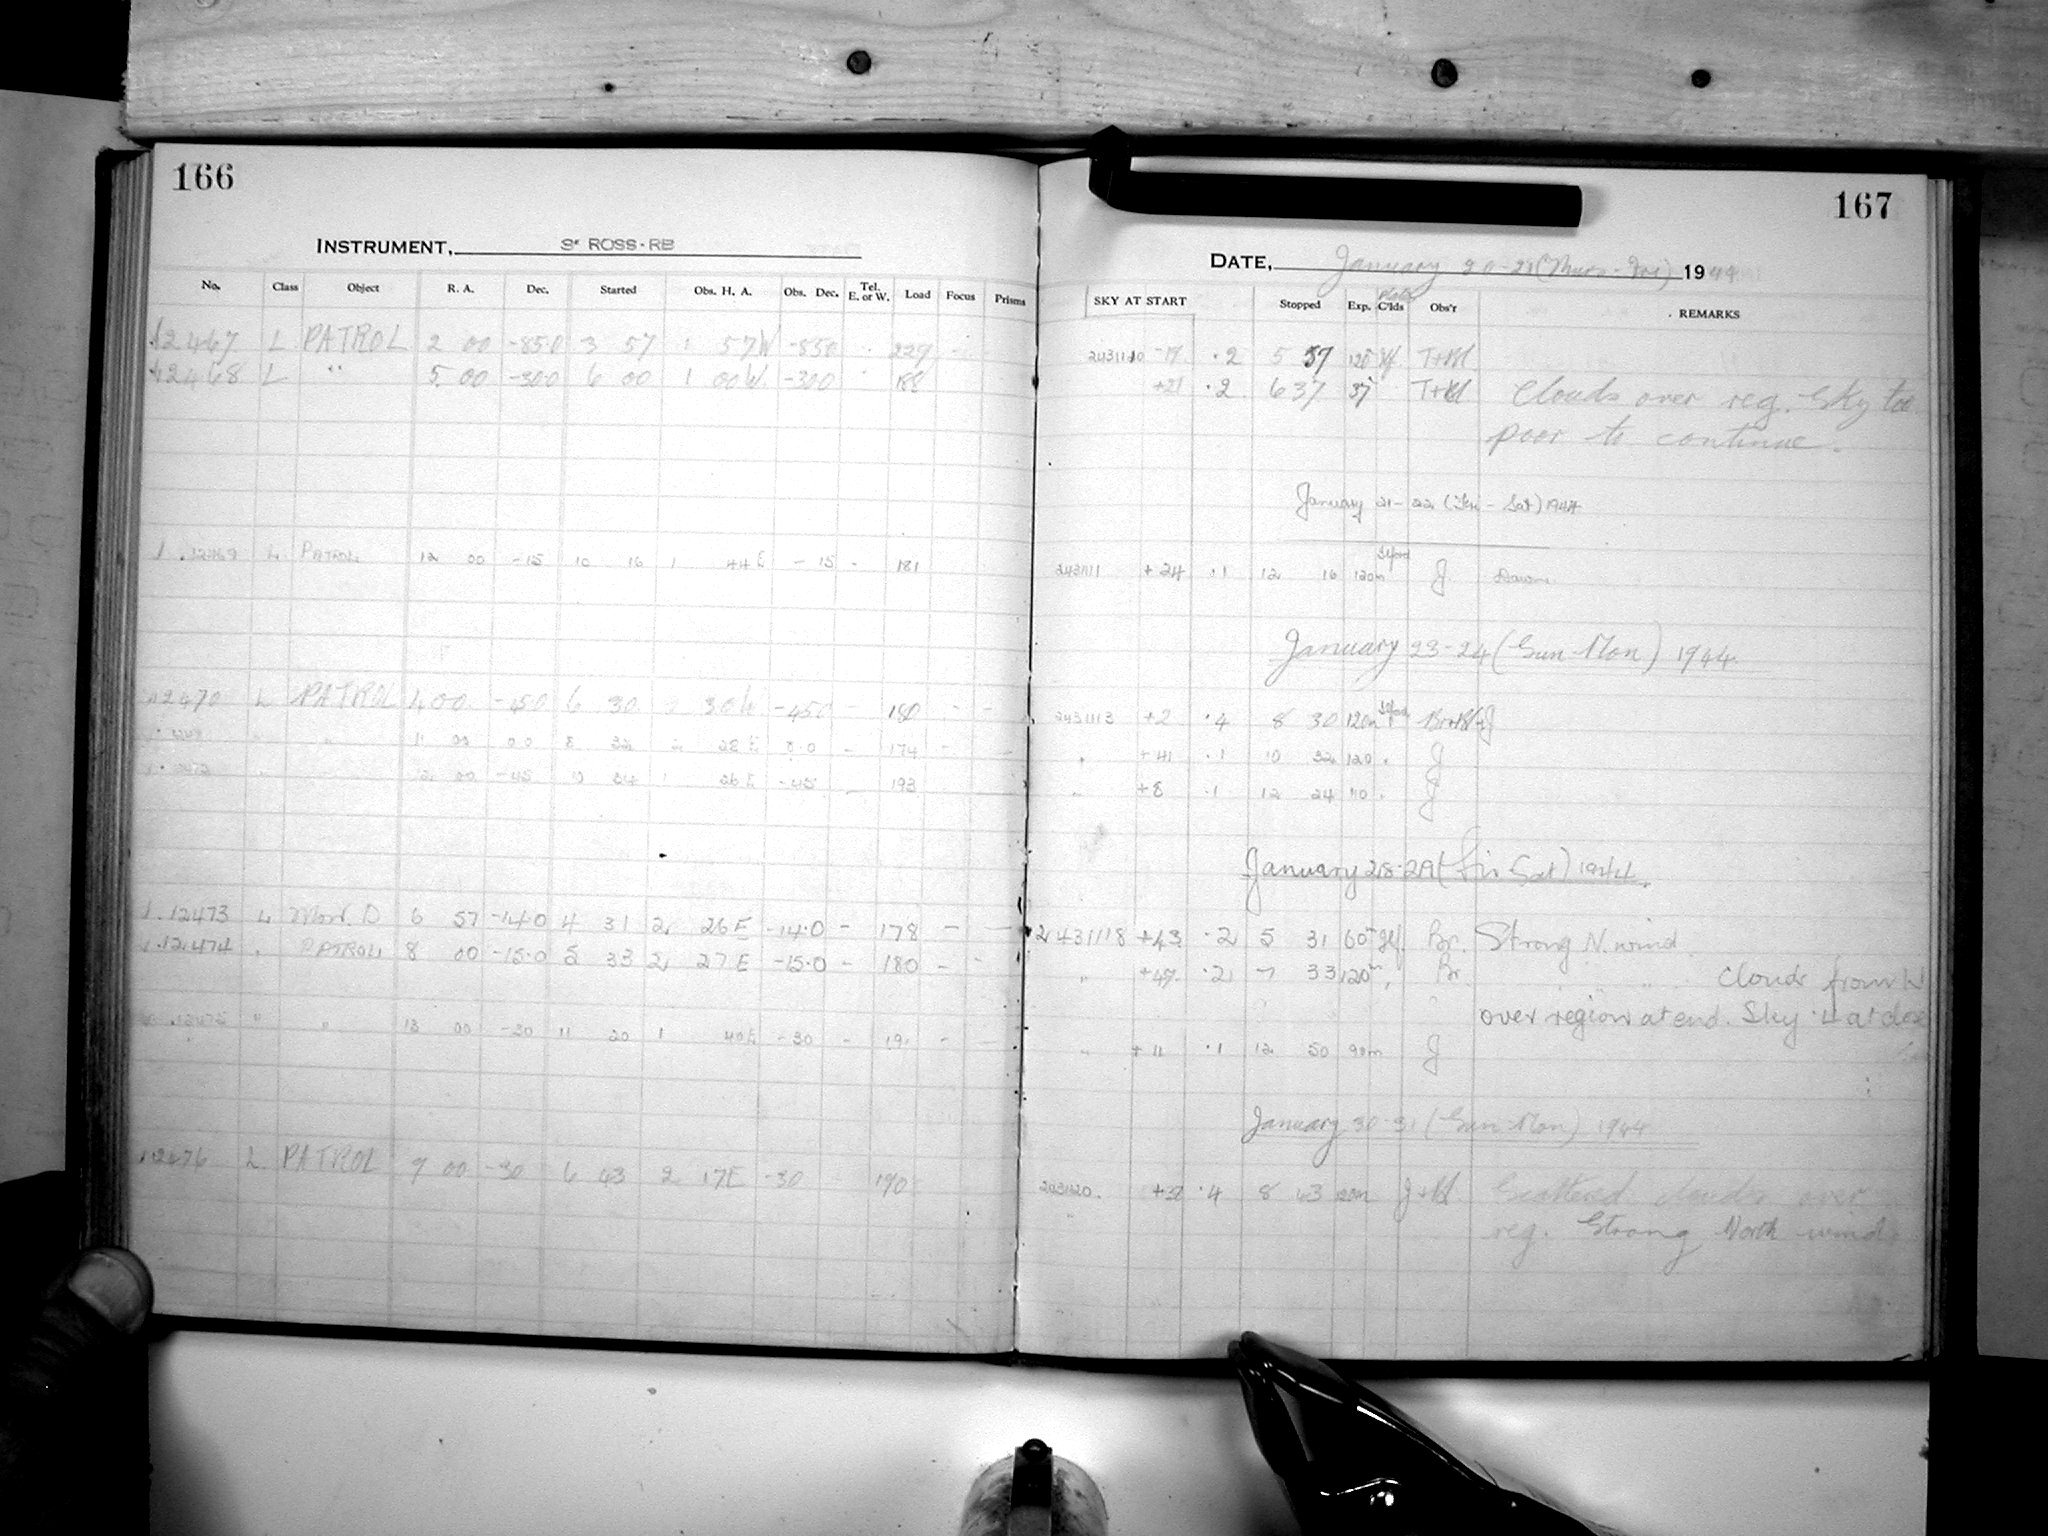 166
INSTRUMENT, 3" ROSS-RB
No. Class Object R. A. Dec. Started Obs. H. A. Obs. Dec. Tel. E. or W. Load Focus Prisms
12467 L PATROL 2 00 -850 3 57 1 57W -850 229
12468 L " 5 00 -300 6 00 1 00W -300 188
12469 L PATROL 12 00 -15 10 16 1 44E -15 - 181
12470 L PATROL 4 00 -450 6 30 2 30W -450 - 180 - -
" " 11 00 00 8 32 2 28E 0.0 - 174 - -
" 12 00 -45 10 34 1 26E -45 - 193
1.12473 L 6 57 -14.0 4 31 2 26E -14.0 - 178 - -
1.12474 " PATROL 8 00 -15.0 5 33 2 27E -15.0 - 180 - -
12475 " " 13 00 -30 11 20 1 40E -30 - 191 - -
12476 L PATROL 9 00 -30 6 43 2 17E -30 190
167
DATE, January 20-21 (Thurs-Fri) 1944
SKY AT START Stopped Exp. C'lds Obs'r REMARKS
2431110 -17 .2 5 57 120 T+M
+21 .2 6 37 37 T+M Clouds over reg. - Sky too
poor to continue.
January 21-22 (Fri - Sat) 1944
2431111 +24 .1 12 16 120m J Dawn
January 23-24 (Sun-Mon) 1944
2431113 +2 .4 8 30 120m
" +41 .1 10 32 120 J
" +8 .1 12 24 110 J
January 28-29 (Fri Sat) 1944.
2431118 +43 .2 5 31 60m Br. Strong N. wind
" +47 .2 7 33 120m Br " " " Clouds from W
over region at end. Sky .4 at close
" +11 .1 12 50 90m J
January 30-31 (Sun-Mon) 1944
2431120. +32 .4 8 43 120m J+M Scattered clouds over
reg. Strong North wind